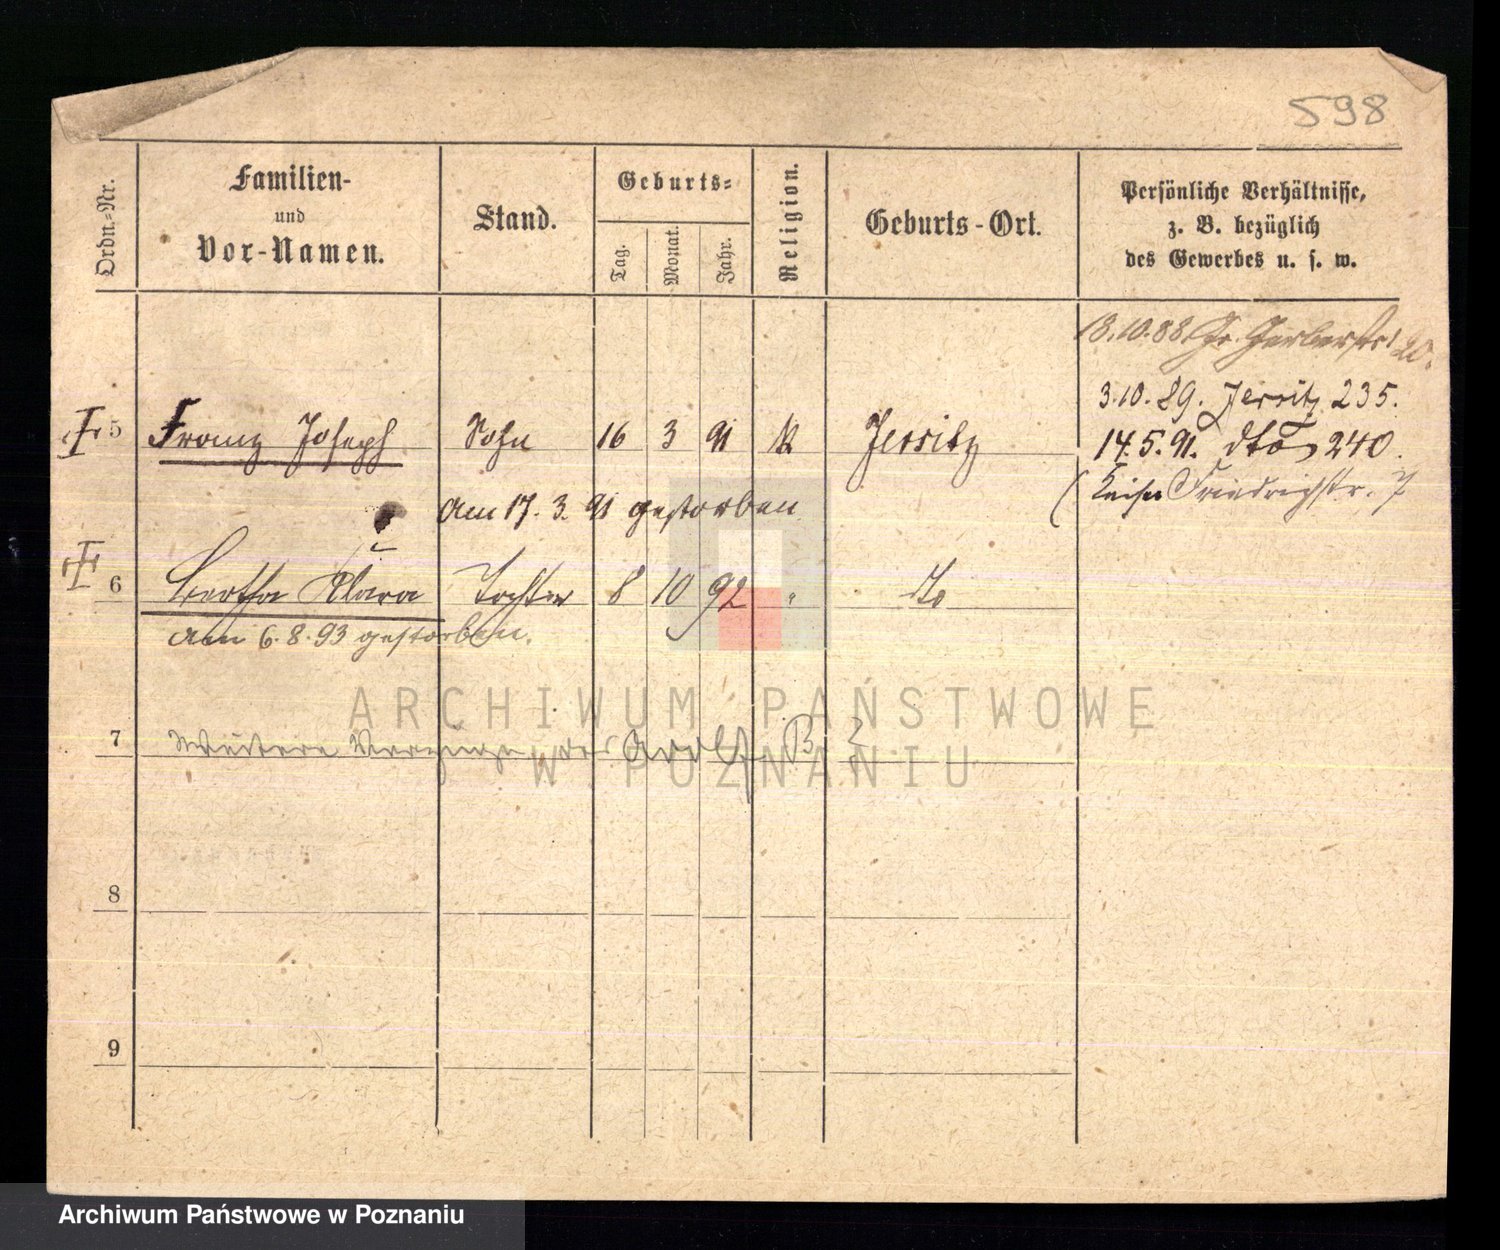 598
Ordn.-Nr.
Familien-
und
Vor-Namen.
Stand.
Geburts-
Tag.
Monat.
Jahr.
Religion.
Geburts-Ort.
Persönliche Verhältnisse,
z. B. bezüglich
des Gewerbes u. s. w.
13.10.88 Gr. Gerberstr. 20.
3.10.89. Jersitz 235.
5 Franz Joseph Sohn 16 3 91 k Jersitz
14.5.91. dto 240.
(Kaiser Friedrichstr. 7
am 17. 3. 91 gestorben
6 Bertha Klara Tochter 8 10 92 " do
am 6.8.93 gestorben.
ARCHIWUM PAŃSTWOWE
W POZNANIU
7 Weitere Verzüge
8
9
Archiwum Państwowe w Poznaniu